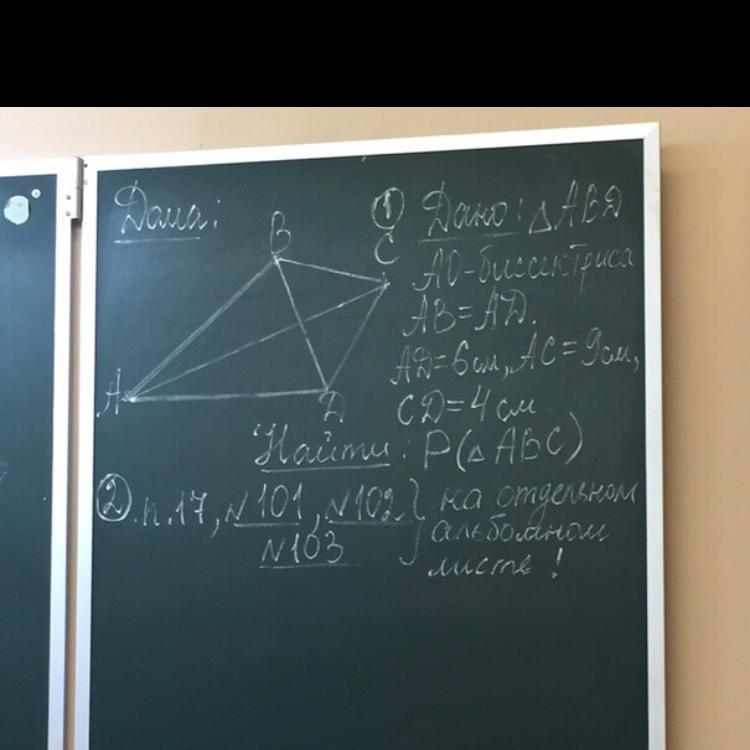 Дома:
B
C
A
D
① Дано: △ABD
AO-биссектриса
AB=AD.
AD=6см, AC=9см,
CD=4 см
Найти: P(△ABC)
② п.17, №101, №102 } на отдельном
№103 альбомном
листе!